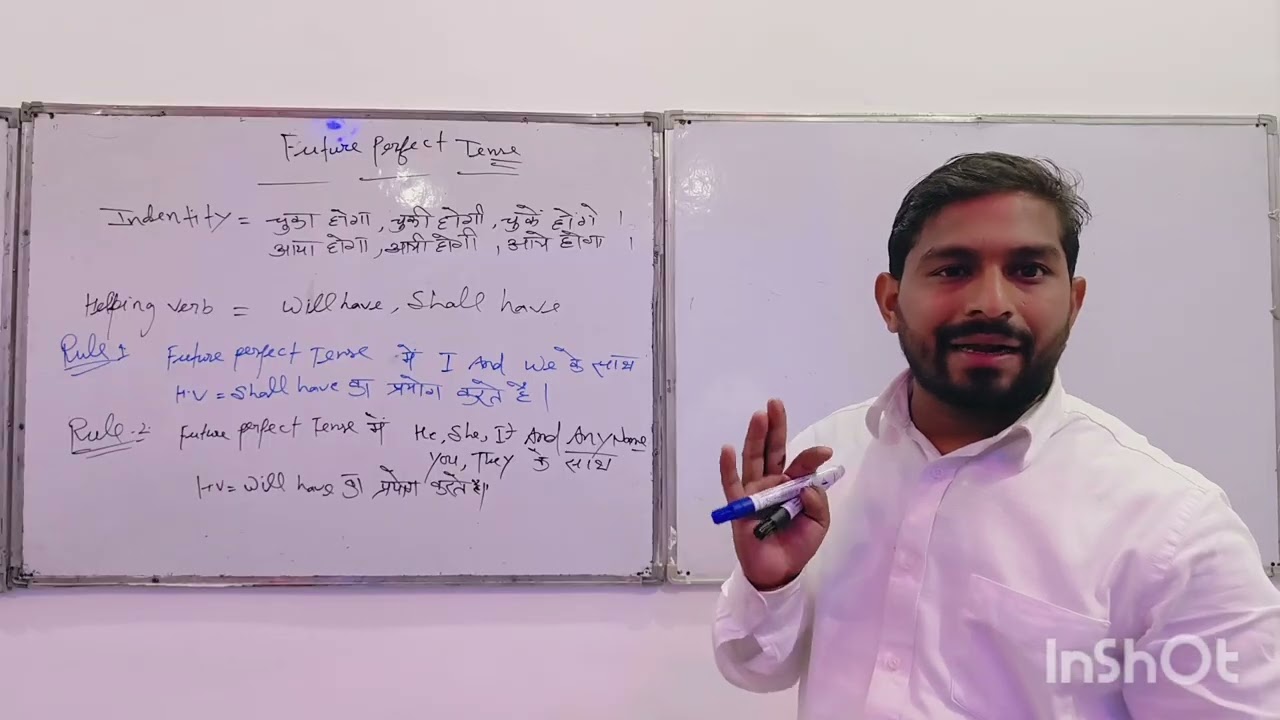 Future perfect Tense
Indentity = चुका होगा, चुकी होगी, चुकें होंगे।
आया होगा, आती होगी, आते होगा।
Helping verb = will have, Shall have
Rule 1 Future perfect Tense में I And We के साथ
H.V = Shall have का प्रयोग करते है।
Rule-2 Future perfect Tense में He, She, It And Any Name
You, They के साथ
H.V = will have का प्रयोग करते है।
InShOt